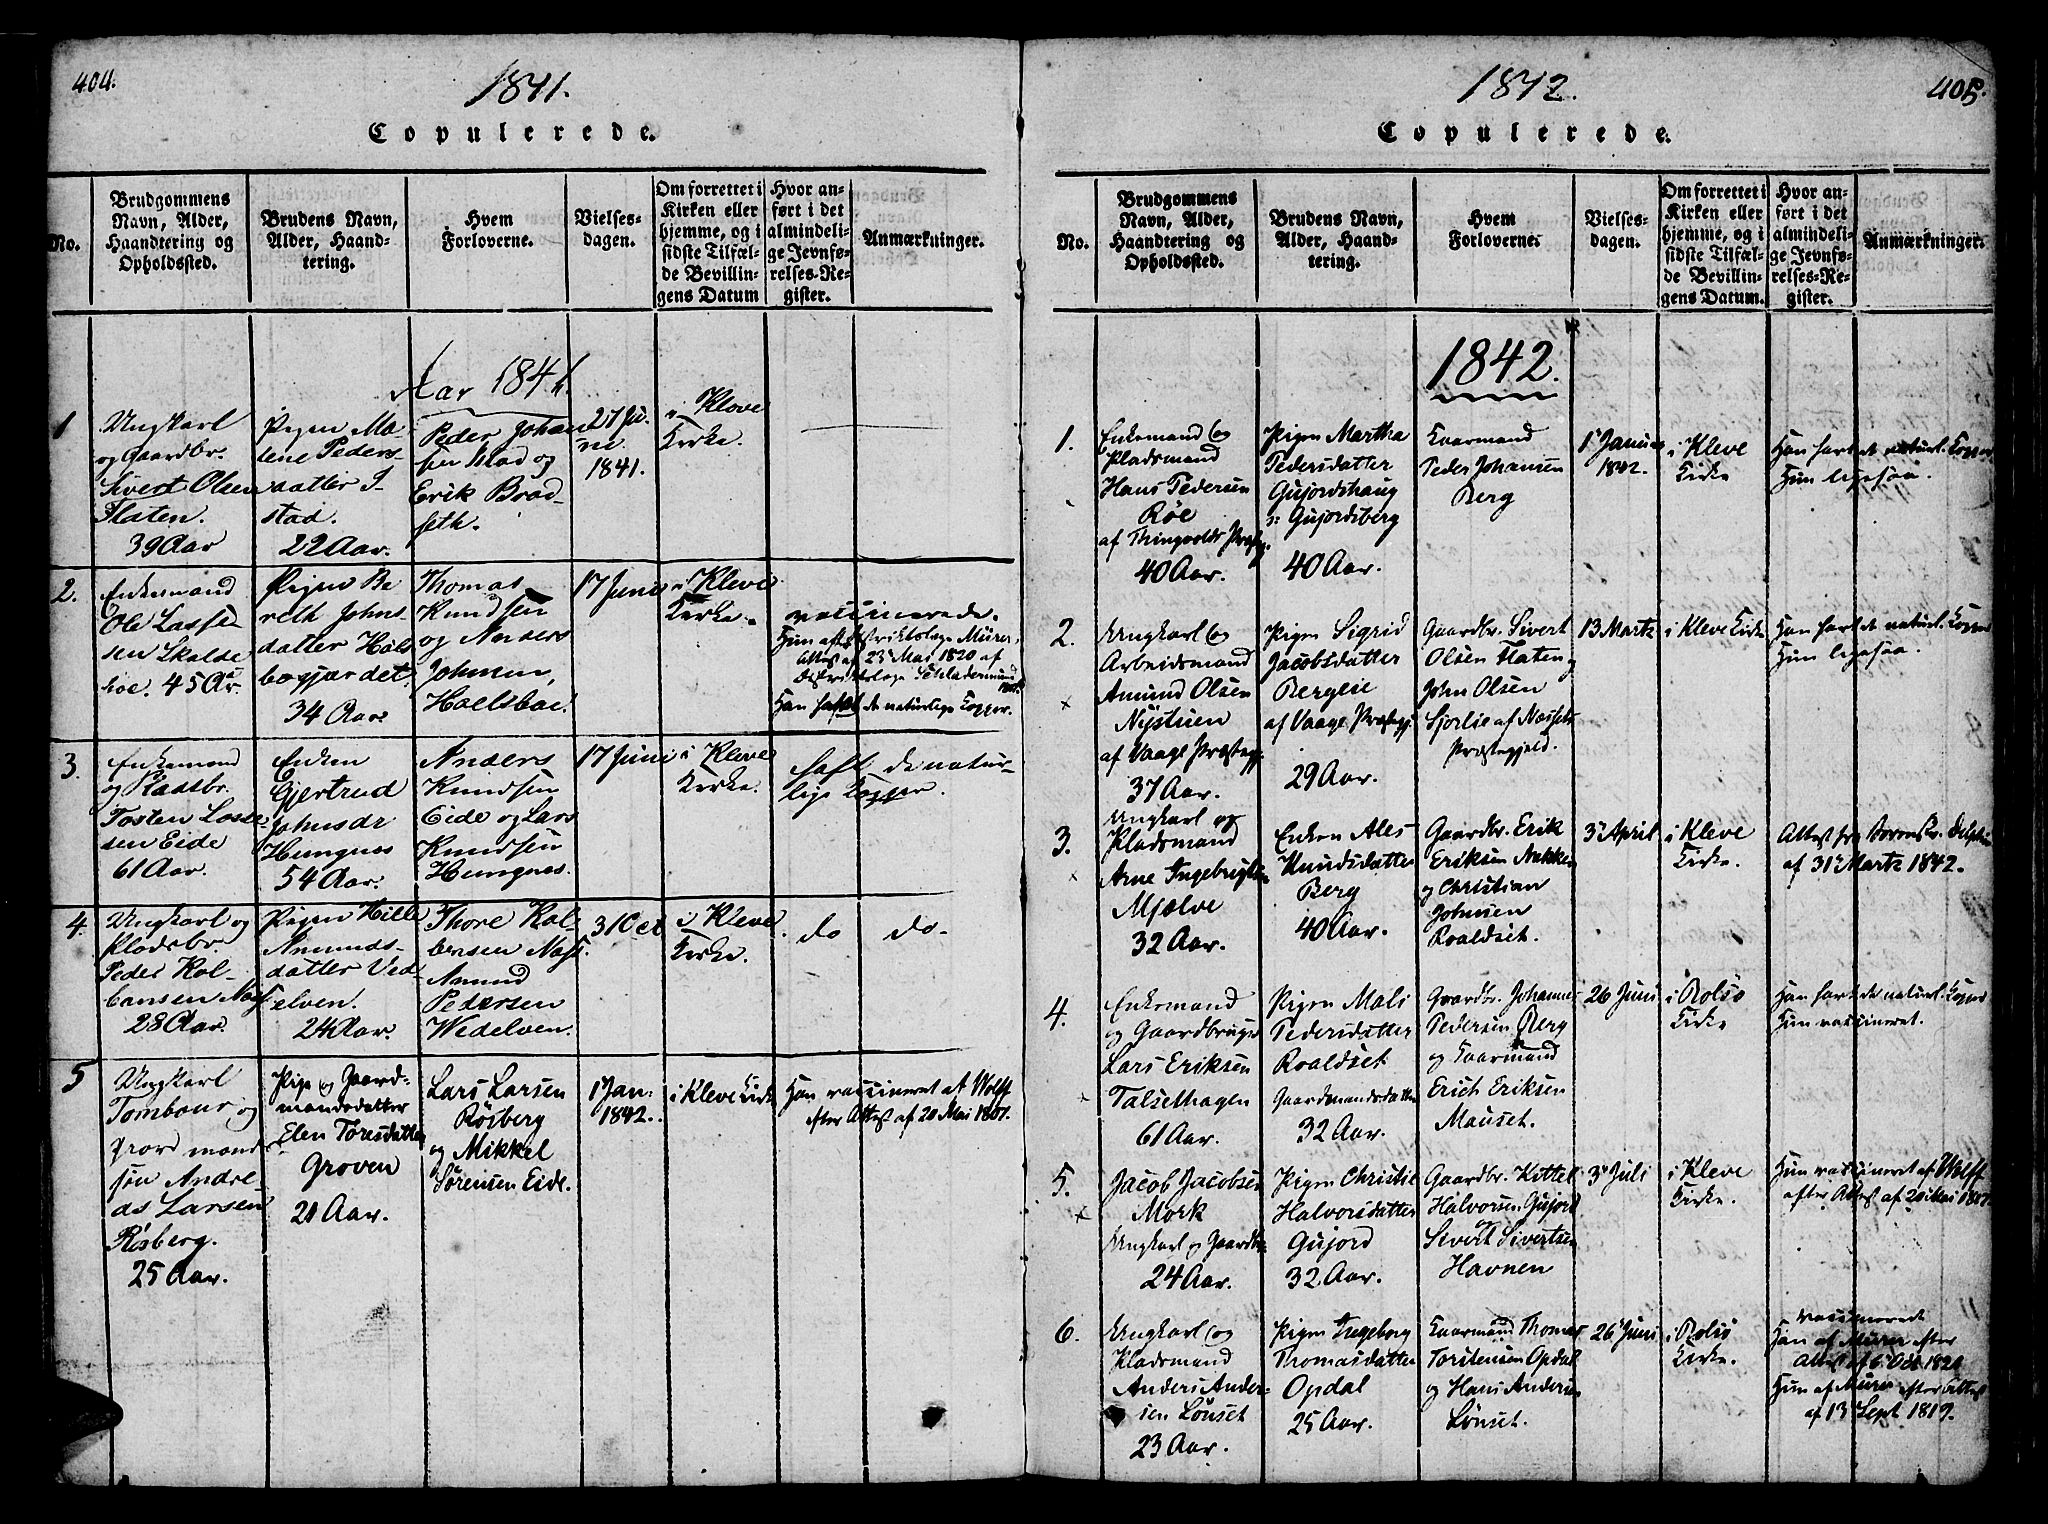 404.
1841.
Copulerede.
No.
Brudgommens
Navn, Alder,
Haandtering og
Opholdssted.
Brudens Navn,
Alder, Haand-
tering.
Hvem
Forloverne.
Vielses-
dagen.
Om forrettet i
Kirken eller
hjemme, og i
sidste Tilfæl-
de Bevillin-
gens Datum
Hvor an-
ført i det
almindeli-
ge Jevnfø-
relses-Re-
gister.
Anmærkninger.
Aar 1841.
1
Ungkarl
og Gaardbr.
Sivert Olsen
Flaten.
39 Aar
Pigen Ma-
lene Peders-
datter I-
stad.
22 Aar.
Peder Johan
sen Mad og
Erik Brad-
seth.
27 Ju-
ni
1841.
i Klove
Kirke.
2.
Enkemand
Ole Lasse
sen Skalde
hoe. 45 Aar.
Pigen Be
reth Johns
datter Hols
bogjærdet.
34 Aar
Thomas
Knudsen
og Anders
Johnsen,
Hoelsboe.
17 Juni
i Kleve
Kirke.
vaccinerede.
Hun efter Distriktslæge Murer,
Attest af 23 Mai 1820 af
Han haft de naturlige Kopper.
3.
Enkemand
og Pladsbr.
Tosten Lasse-
sen Eide
61 Aar.
Enken
Gjertrud
Johnsdr
Hungnes
54 Aar.
Anders
Knudsen
Eide og Lars
Knudsen
Hungnes.
17 Juni
i Kleve
Kirke.
haft de natur-
lige Kopper.
4.
Ungkarl og
Pladsbr.
Peder Kol-
bansen Næss
28 Aar.
Pigen Hille
Amunds-
datter Ved-
elven.
24 Aar.
Thore Kol-
bensen Næss.
Amund
Pedersen
Wedelven.
31 Oct
i Kleve
Kirke.
do do.
5
Ungkarl
Tombour og
sen Andre-
as Larsen
Røsberg.
25 Aar.
Pige og Gaard-
mandsdatter
Elen Toresdatter
Groven
21 Aar.
Lars Larsen
Røsberg
og Mikkel
Sørensen Eide.
1 Jan.
1842.
i Kleve Kirke
Han vaccineret af Wolff
efter Attest af 20 Mai 1801.
1842.
405.
Copulerede.
No.
Brudgommens
Navn, Alder,
Haandtering og
Opholdssted.
Brudens Navn,
Alder, Haand-
tering.
Hvem
Forloverne.
Vielses-
dagen.
Om forrettet i
Kirken eller
hjemme, og i
sidste Tilfæl-
de Bevillin-
gens Datum.
Hvor an-
ført i det
almindeli-
ge Jevnfø-
relses-Re-
gister.
Anmærkninger.
1842.
1.
Enkemand og
Pladsmand
Hans Pedersen
Røe
af Thingvolds Præstegj.
40 Aar.
Pigen Martha
Pedersdatter
Gujordshaug
s: Gujordsberg
40 Aar.
Kaarmand
Peder Johansen
Berg
1 Januar
1842.
i Kleve
Kirke
Han havt de naturl. Kopper
Hun ligesaa.
2.
Ungkarl og
Arbeidsmand
Amund Olsen
Nystuen
af Vaage Præstegj.
37 Aar.
Pigen Sigrid
Jacobsdatter
Bergeie
af Vaage Præstegj.
29 Aar.
Gaardbr. Sivert
Olsen Flaten og
John Olsen
Sjorlie af Næssets
Præstegjeld.
13 Marts
i Kleve Kirke
Han havt de naturl. Kopper
Hun ligesaa.
3.
Ungkarl og
Pladsmand
Arne Ingebrigtsen
Mjelve
32 Aar.
Enken Ales
Knudsdatter
Berg
40 Aar.
Gaardbr. Erik
Eriksen Nakken
og Christian
Johnsen
Roaldset.
3 April
i Kleve
Kirke.
Attest fra Sorenskr. Delphin
af 31 Marts 1842.
4.
Enkemand
og Gaardbruger
Lars Eriksen
Talsethagen
61 Aar.
Pigen Mali
Pedersdatter
Roaldset
Gaardmandsdatter
32 Aar.
Gaardbr. Johannes
Pedersen Berg
og Kaarmand
Erich Eriksen
Mauset.
26 Juni
i Bolsø
Kirke
Han havt de naturl. Kopper
Hun vaccineret.
5.
Jacob Jacobsen
Mork
Ungkarl og Gaardbr.
24 Aar.
Pigen Christie
Halvorsdatter
Gujord
32 Aar.
Gaardbr. Kittel
Halvorsen Gujord
og
Sivert Sivertsen
Havnen
3 Juli
i Kleve
Kirke.
Hun vaccineret af Wolff
efter Attest af 20 Mai 1801.
6.
Ungkarl og
Pladsmand
Anders Ander-
sen Lønset
23 Aar.
Pigen Ingeborg
Thomasdatter
Opdal
25 Aar.
Kaarmand Thomas
Torstensen Opdal
og Hans Andersen
Lønset.
26 Juni
i Bolsø
Kirke.
vaccineret
Han af Murer efter
Attest af 6 Oct 1820
Hun af Murer efter Attest
af 13 Sept 1819.